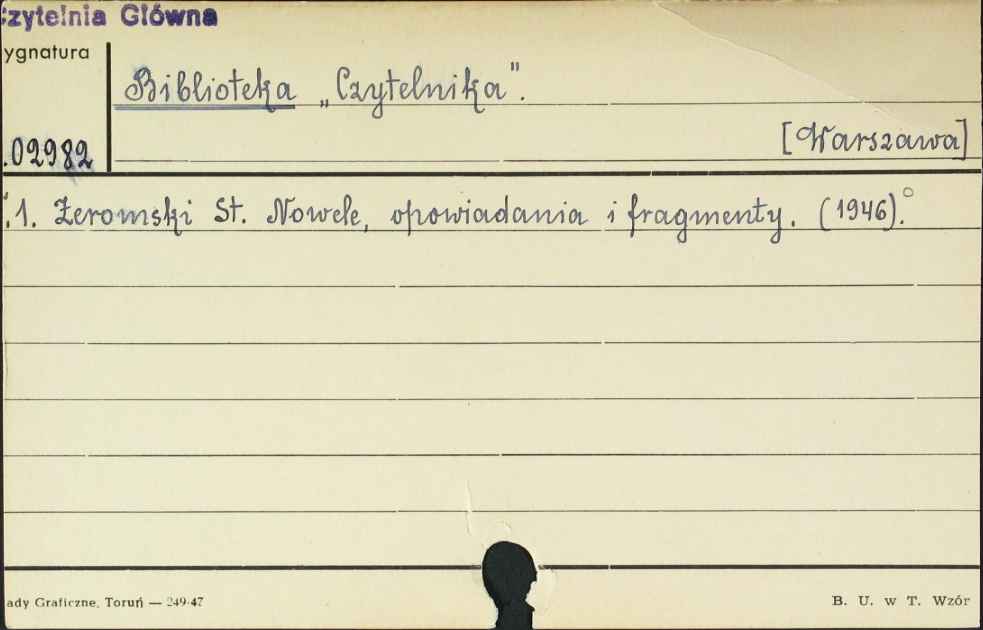 zytelnia Główna
ygnatura
Biblioteka „Czytelnika".
[Warszawa]
.02982
1. Żeromski St. Nowele, opowiadania i fragmenty. (1946).°
ady Graficzne, Toruń — 249-47
B. U. w T. Wzór